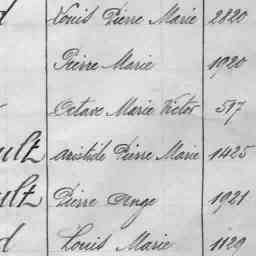 Louis Pierre Marie 2820
Pierre Marie 1920
Octave Marie Victor 517
Aristide Pierre Marie 1425
Pierre Ange 1921
Louis Marie 1129